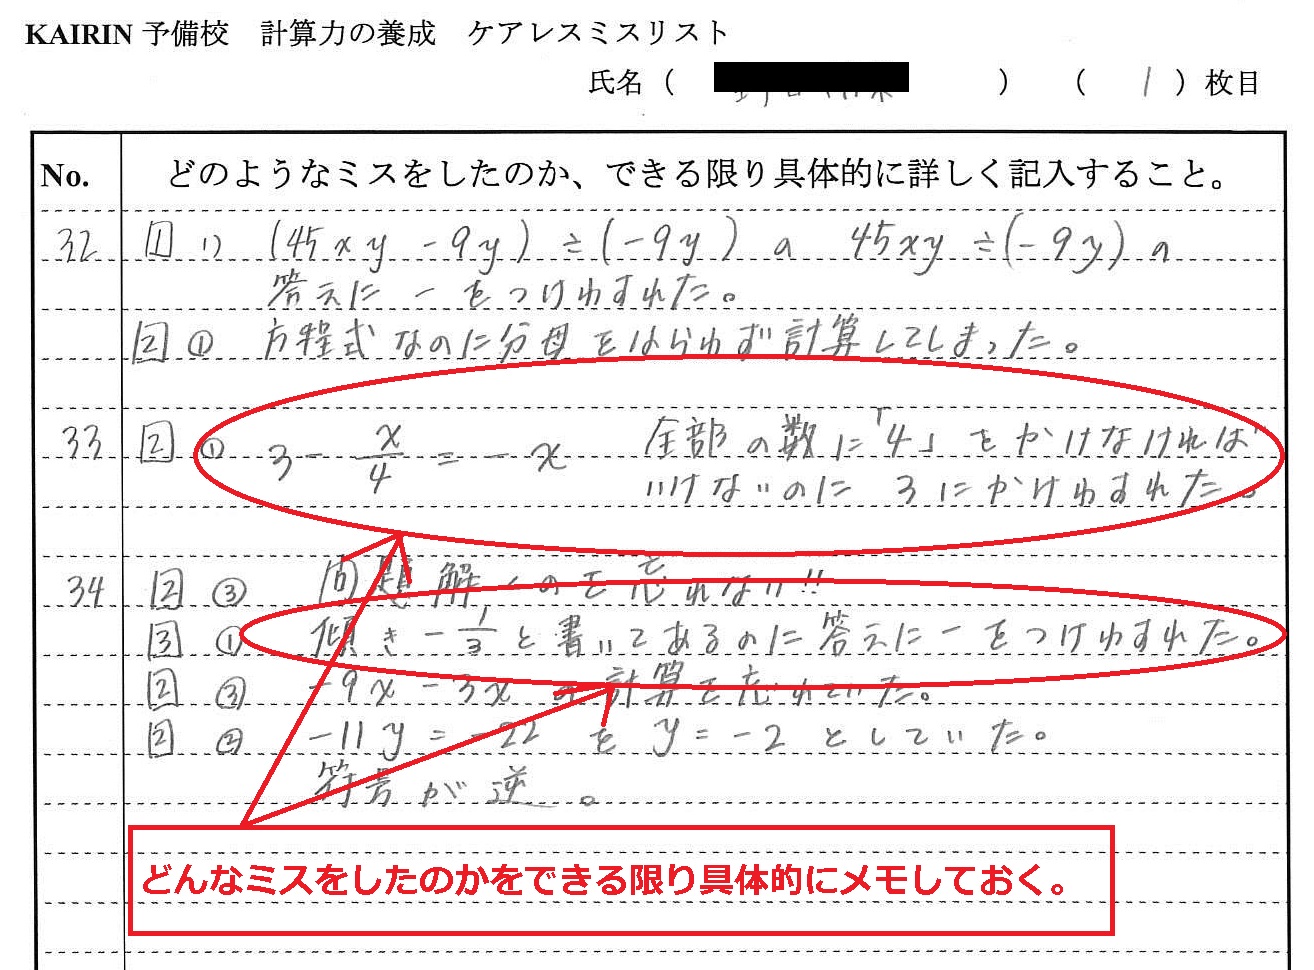 KAIRIN 予備校　計算力の養成　ケアレスミスリスト
氏名（　　　）　（ 1 ）枚目
No.　どのようなミスをしたのか、できる限り具体的に詳しく記入すること。
32　1　1)　(45xy - 9y) ÷ (-9y) の　45xy ÷ (-9y) の
答えに - をつけわすれた。
2 ①　方程式なのに分母をはらわず計算してしまった。
33　2 ①　3 - x/4 = - x　全部の数に「4」をかけなければ
いけないのに 3 にかけわすれた。
34　2 ③　問題解くのを忘れない!!
3 ①　傾き - 1/3 と書いてあるのに答えに - をつけわすれた。
2 ③　-9x - 3x の計算を忘れていた。
2 ②　-11y = -22 を y = -2 としていた。
符号が逆。
どんなミスをしたのかをできる限り具体的にメモしておく。